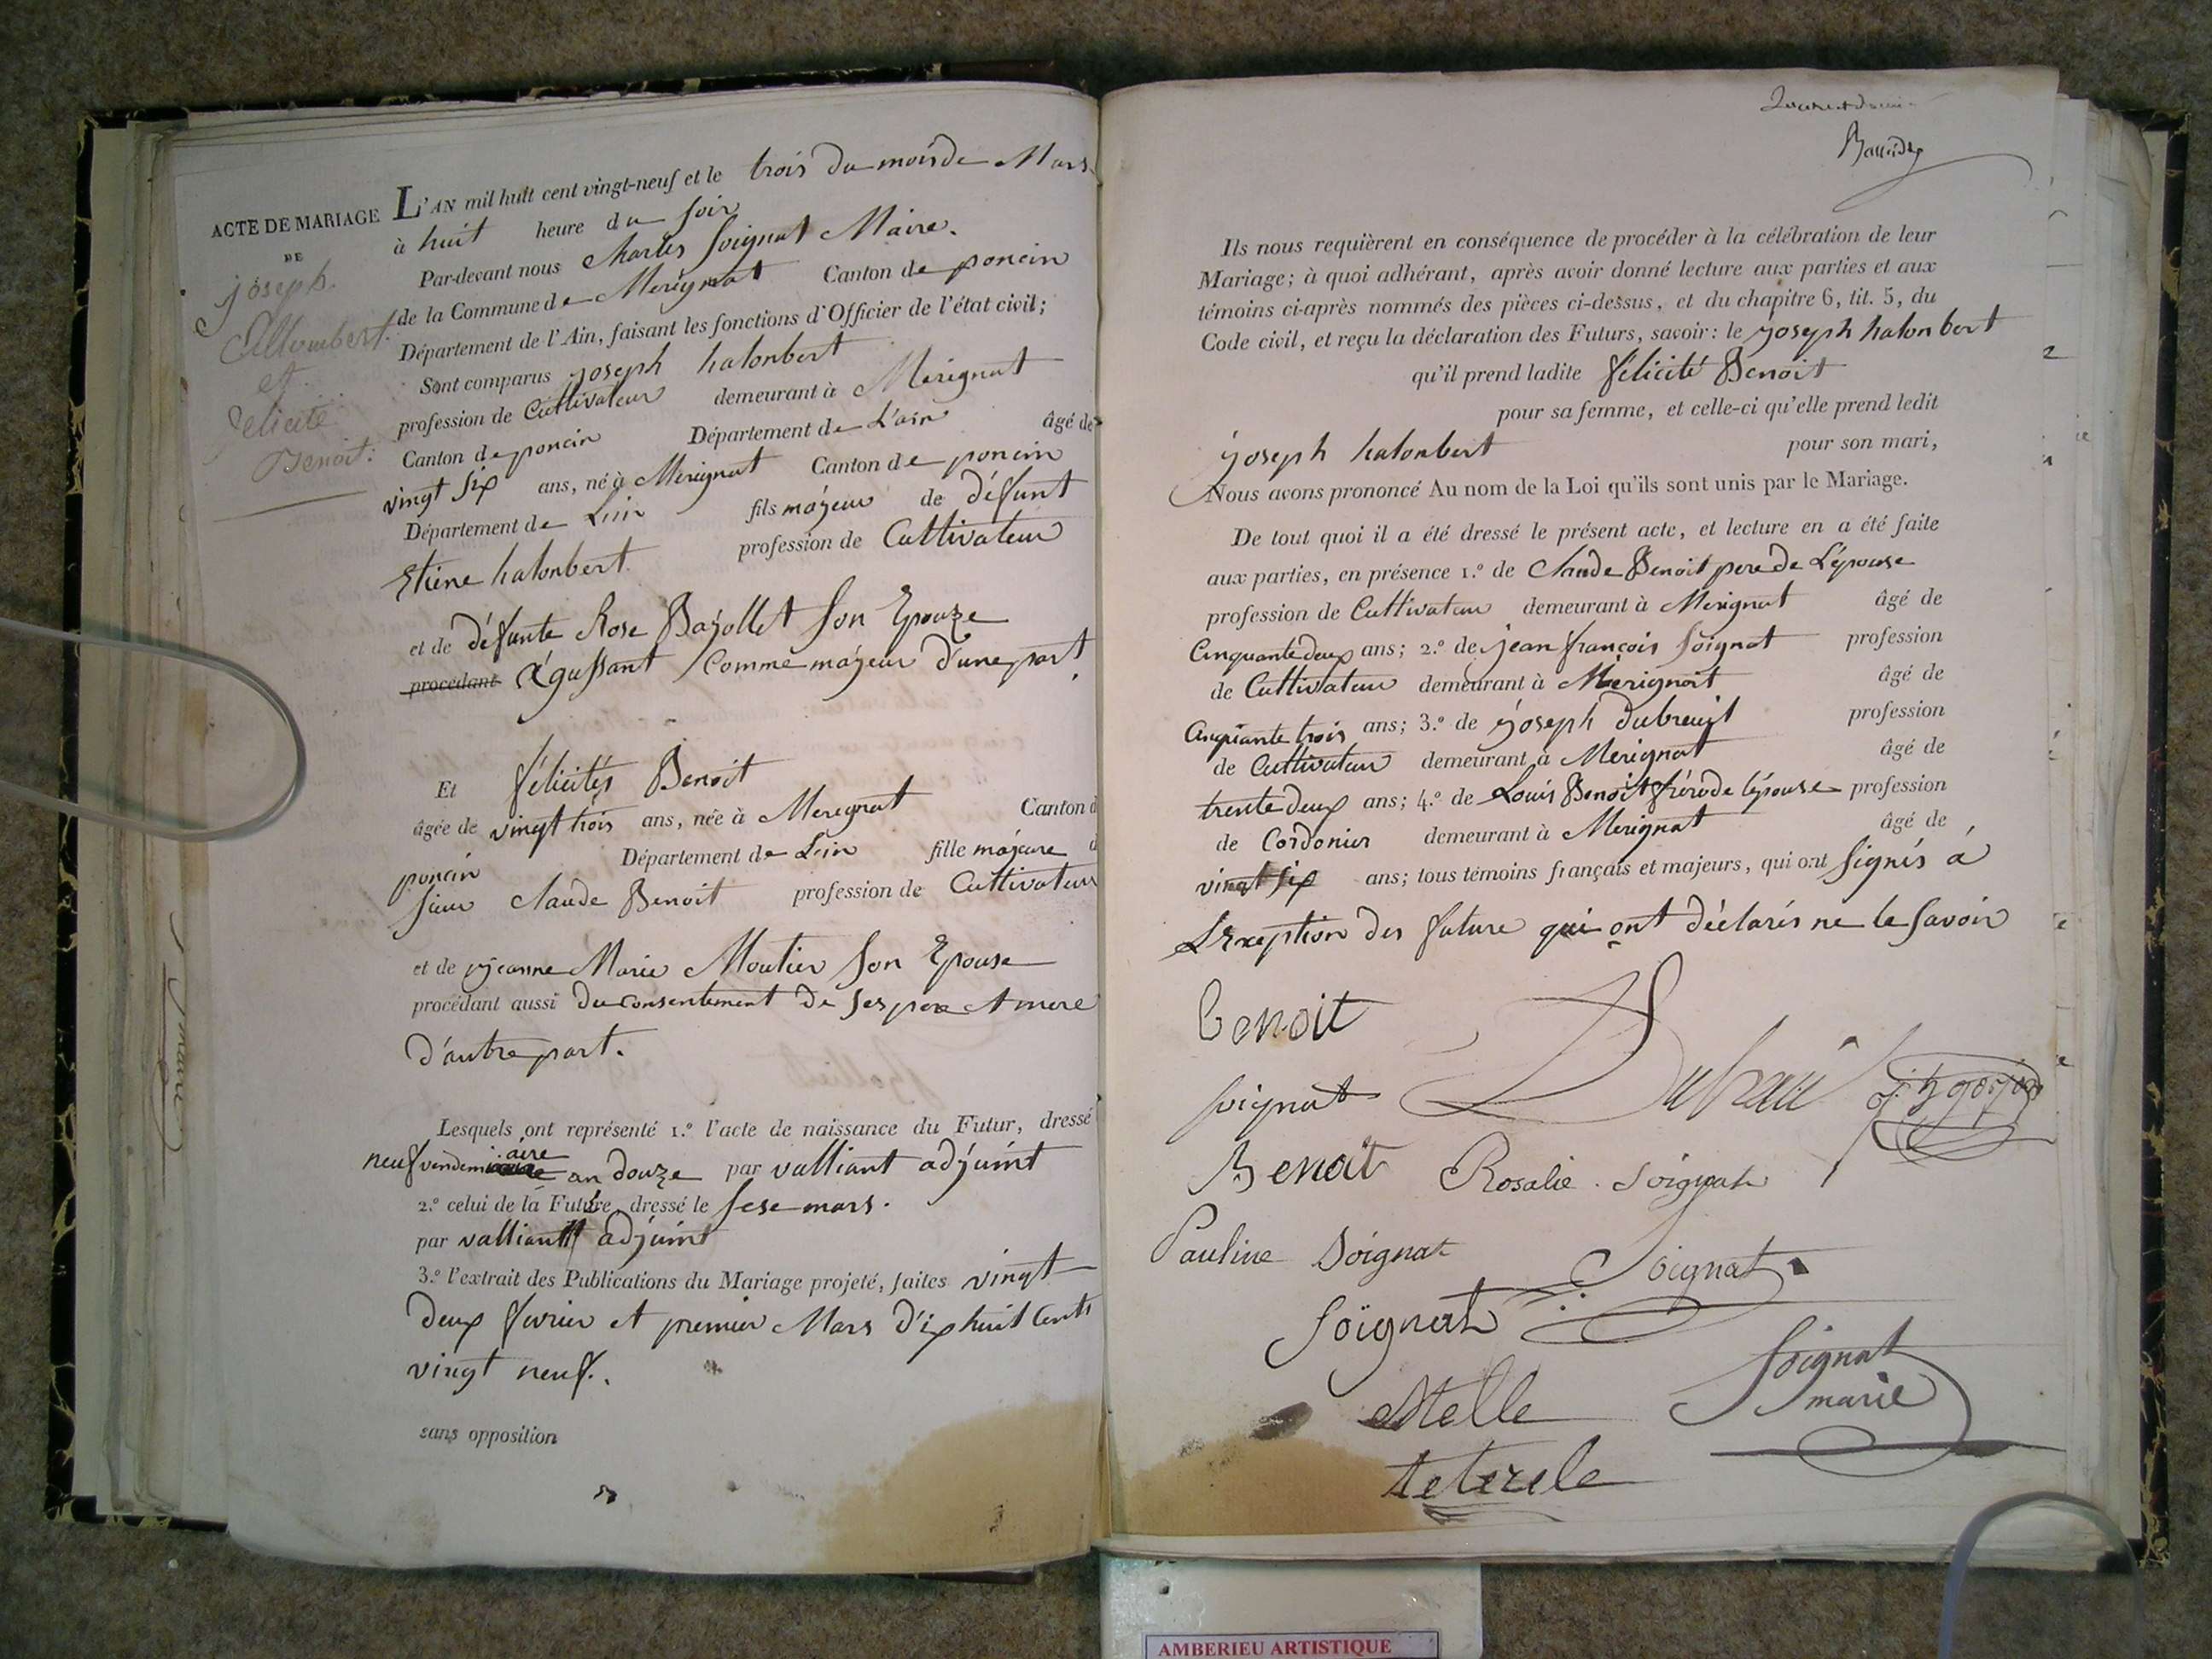 ACTE DE MARIAGE
DE
joseph.
Allombert.
et.
felicité
Benoit.
L'AN mil huit cent vingt-neuf et le trois du mois de Mars
à huit heure du soir
Par-devant nous Charles Soignat Maire.
de la Commune de Merignat Canton de poncin
Département de l'Ain, faisant les fonctions d'Officier de l'état civil;
Sont comparus joseph halonbert
profession de Cultivateur demeurant à Merignat
Canton de poncin Département de L'ain âgé de
vingt six ans, né à Merignat Canton de poncin
Département de Lain fils majeur de défunt
Etiene halonbert profession de Cultivateur
et de défunte Rose Bazollet son Epouze
procédant Comme majeur d'une part.
Et félicités Benoit
âgée de vingt trois ans, née à Merignat Canton d
poncin Département de Lain fille majeure d
sieur Claude Benoit profession de Cultivateur
et de jeanne Marie Moutier son Epouse
procédant aussi du consentement de ses pere et mere
d'autre part.
Lesquels ont représenté 1.° l'acte de naissance du Futur, dressé
neuf vendemiaire an douze par valliant adjuint
2.° celui de la Future, dressé le sese mars.
par valliant adjuint
3.° l'extrait des Publications du Mariage projeté, faites vingt
deux fevrier et premier Mars dix huit Cents
vingt neuf.
sans opposition
Ils nous requièrent en conséquence de procéder à la célébration de leur
Mariage; à quoi adhérant, après avoir donné lecture aux parties et aux
témoins ci-après nommés des pièces ci-dessus, et du chapitre 6, tit. 5, du
Code civil, et reçu la déclaration des Futurs, savoir: le joseph halonbert
qu'il prend ladite félicité Benoit
pour sa femme, et celle-ci qu'elle prend ledit
joseph halonbert pour son mari,
Nous avons prononcé Au nom de la Loi qu'ils sont unis par le Mariage.
De tout quoi il a été dressé le présent acte, et lecture en a été faite
aux parties, en présence 1.° de Claude Benoit pere de L'épouse
profession de Cultivateur demeurant à Merignat âgé de
Cinquante deux ans; 2.° de jean françois Soignat profession
de Cultivateur demeurant à Merignat âgé de
Cinquante trois ans; 3.° de joseph Dubreuil profession
de Cultivateur demeurant à Merignat âgé de
trente deux ans; 4.° de Louis Benoit frère de l'épouse profession
de Cordonier demeurant à Merignat âgé de
vingt six ans; tous témoins français et majeurs, qui ont signés à
L'Exeption des future qui ont déclarés ne le savoir
Benoit
Soignat
Benoit Rosalie Soignat
Pauline Soignat Soignat
Soignat
Soignat
marie
AMBERIEU ARTISTIQUE